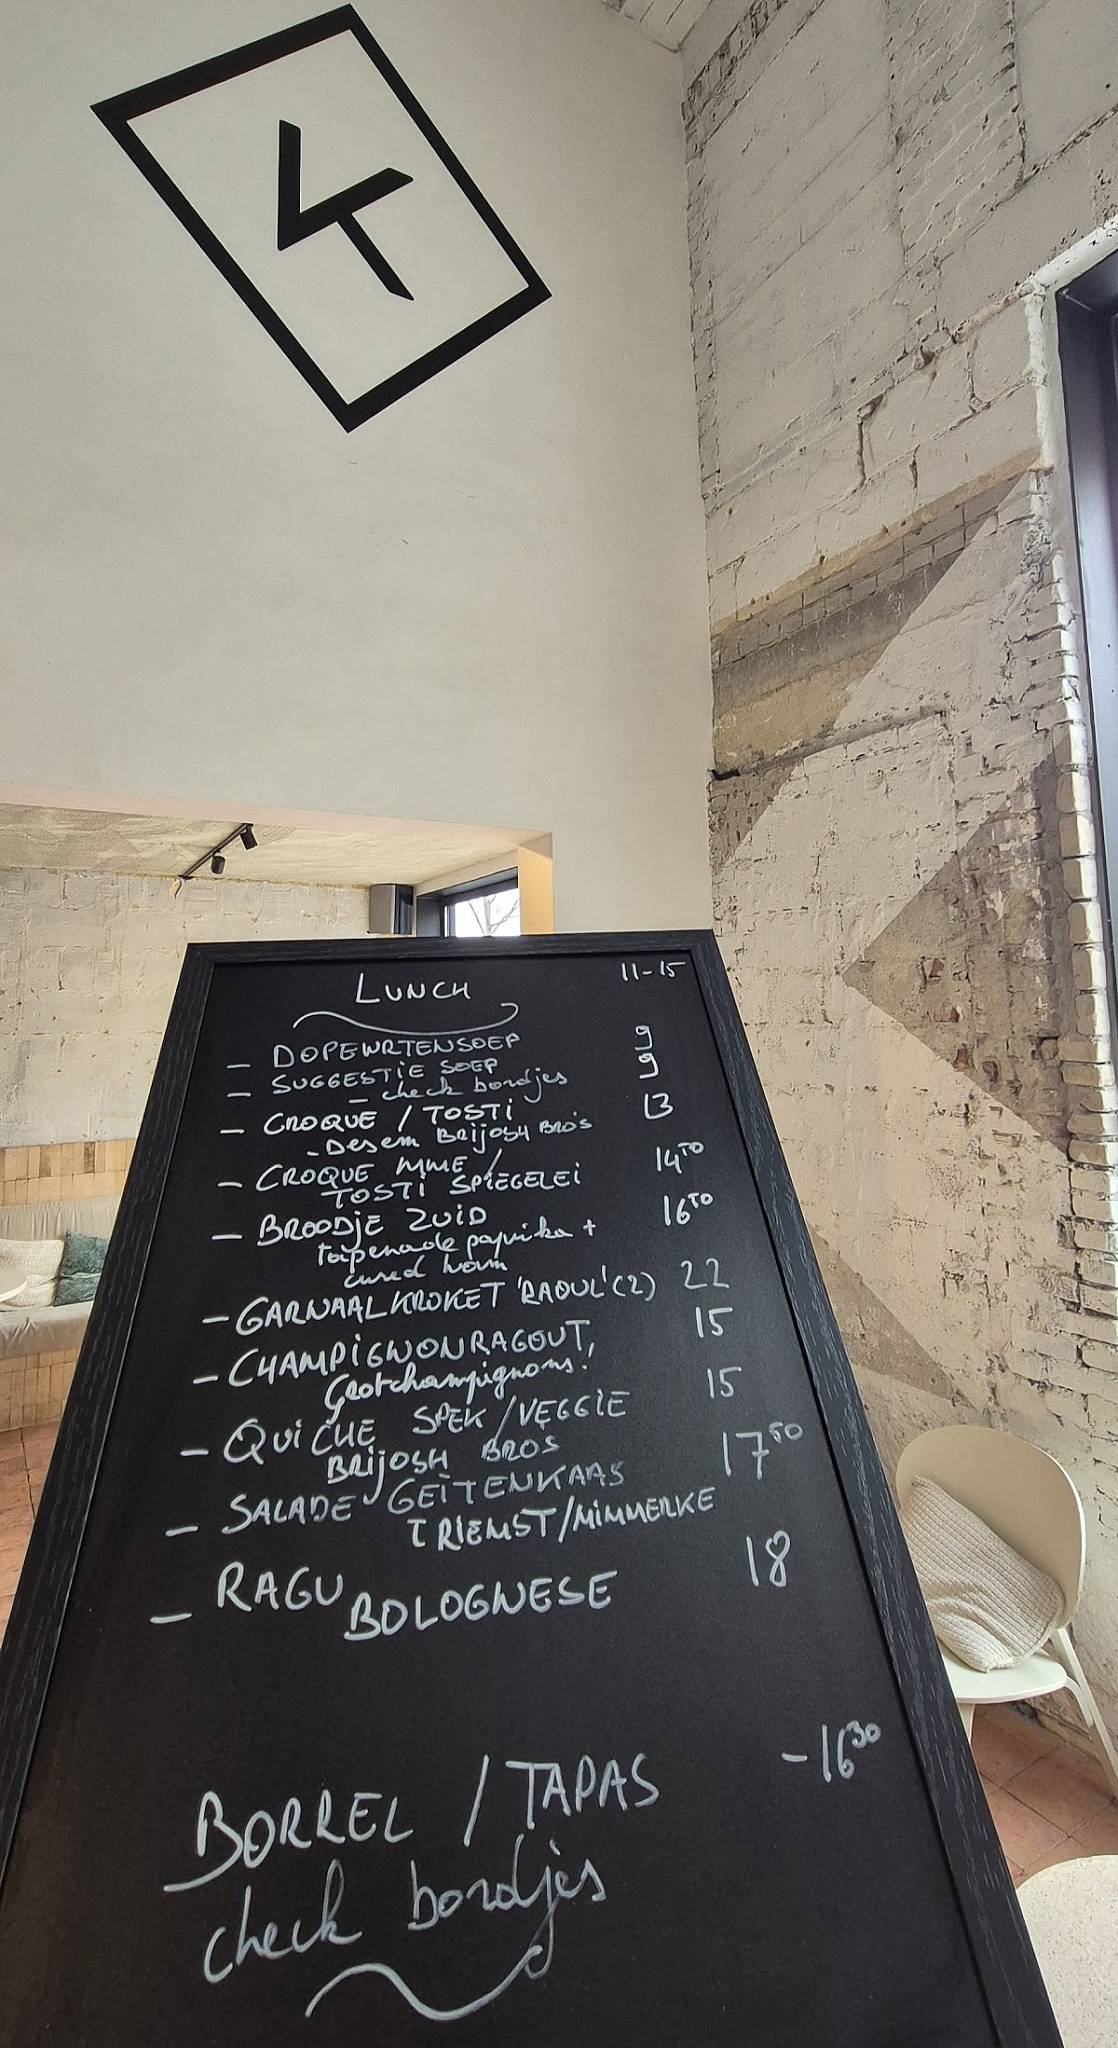 LUNCH 11-15
- DOPEWRTENSOEP 9
- SUGGESTIE SOEP 9
- check bordjes
- CROQUE / TOSTI 13
- Desem BRIJOSH BROS
- CROQUE MME / 14⁵⁰
TOSTI SPIEGELEI
- BROODJE ZUID 16⁵⁰
tapenade paprika +
cured ham
- GARNAALKROKET 'RAOUL' (2) 22
- CHAMPIGNONRAGOUT, 15
Grotchampignons!
- QUICHE SPEK/VEGGIE 15
BRIJOSH BROS
- SALADE GEITENKAAS 17⁵⁰
TRIEMST/MIMMERKE
- RAGU 18
BOLOGNESE
BORREL / TAPAS -16³⁰
check bordjes